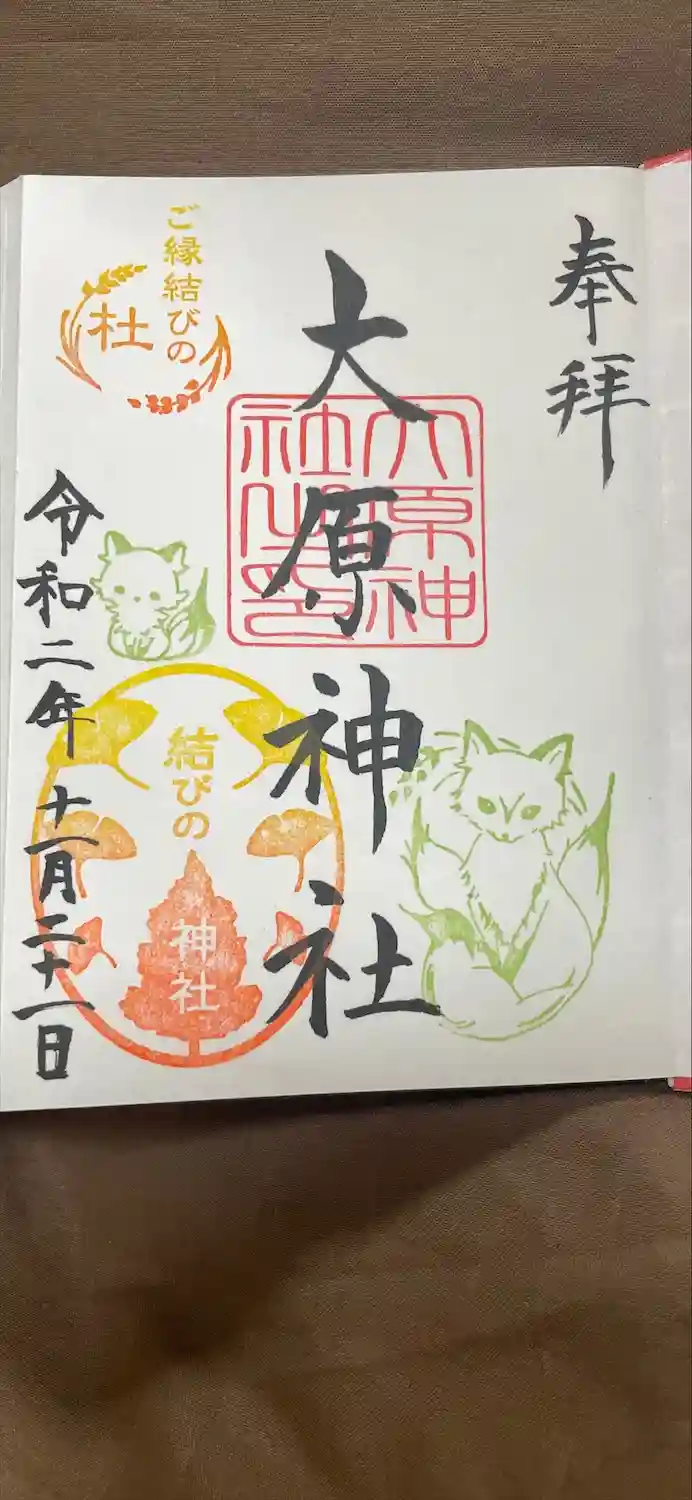 奉拝
大原神社
大原神
社之印
ご縁結びの
杜
結びの
神社
令和二年十一月二十一日